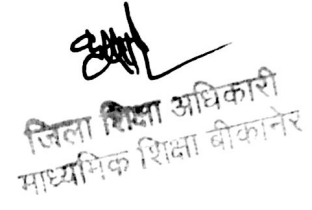 जिला शिक्षा अधिकारी
माध्यमिक शिक्षा बीकानेर